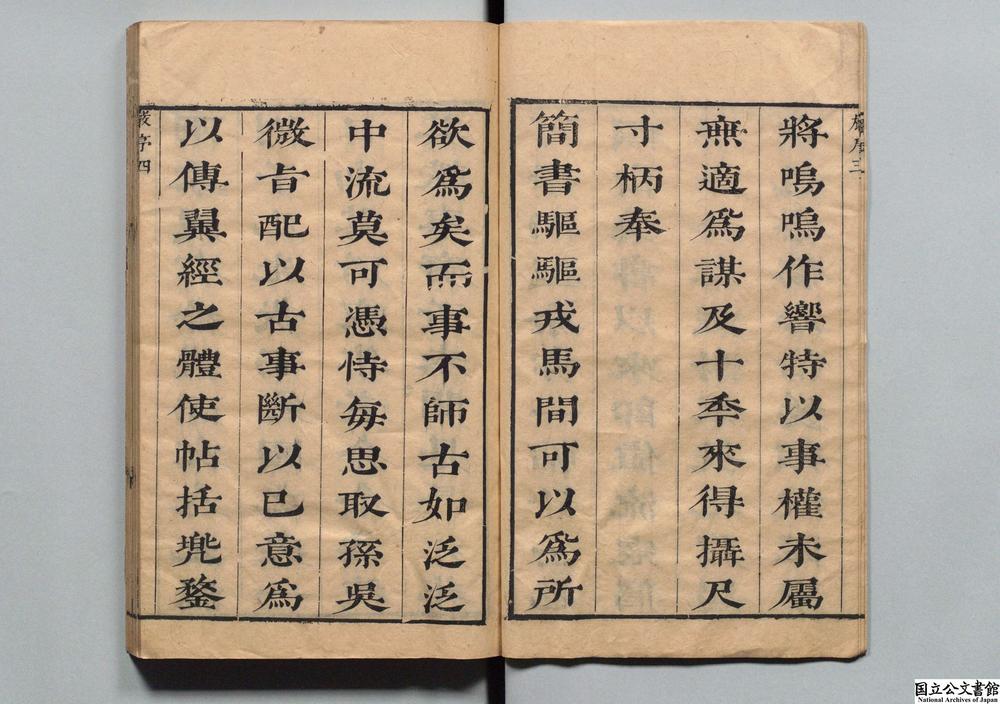 將嗚嗚作響特以事權未屬
無適爲謀及十年來得攝尺
寸柄奉
簡書驅驅戎馬間可以爲所
欲爲矣而事不師古如泛泛
中流莫可憑恃每思取孫吳
微旨配以古事斷以已意爲
以傳翼經之體使帖括兠鍪
序三
序四
国立公文書館
National Archives of Japan